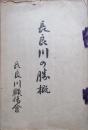 長良川の勝概
長良川顕勝會